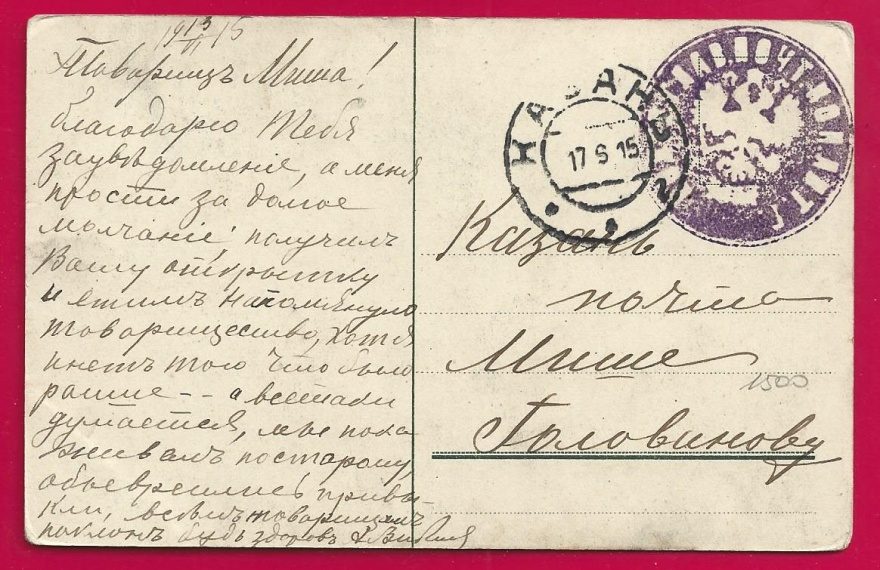 19 13/VI 15
Товарищъ Миша!
благодарю Тебя
за увѣдомленіе, а меня
прости за долгое
молчаніе; получилъ
Вашу открытку
и этимъ напомянуло
товарищество, хотя
и нетъ того что было
раньше -- а всетаки
думается, мы пока
живемъ по старому,
привы-
кли, всѣмъ товарищамъ
поклонъ будь здоровъ
КАЗАНЬ
17 6 15
2
Казань
почта
Мише
Головинову
1500